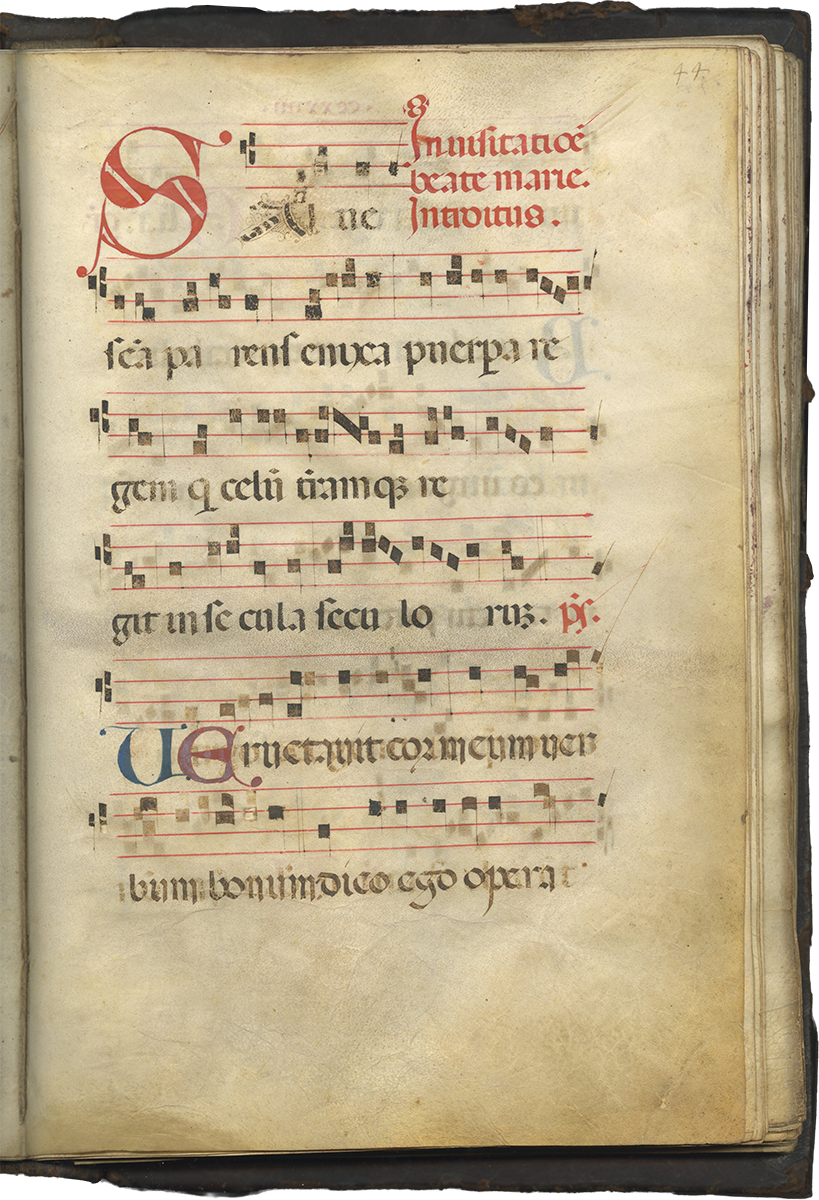 44
In uisitatiōe
beate marie.
Introitus.
SAlue
scā pa rens enixa puerpa re
gem q celū t̄ramqȝ re
git in se cula secu lo ruȝ. p̄s.
UEructauit cor meum uer
bum bonum dico ego opera